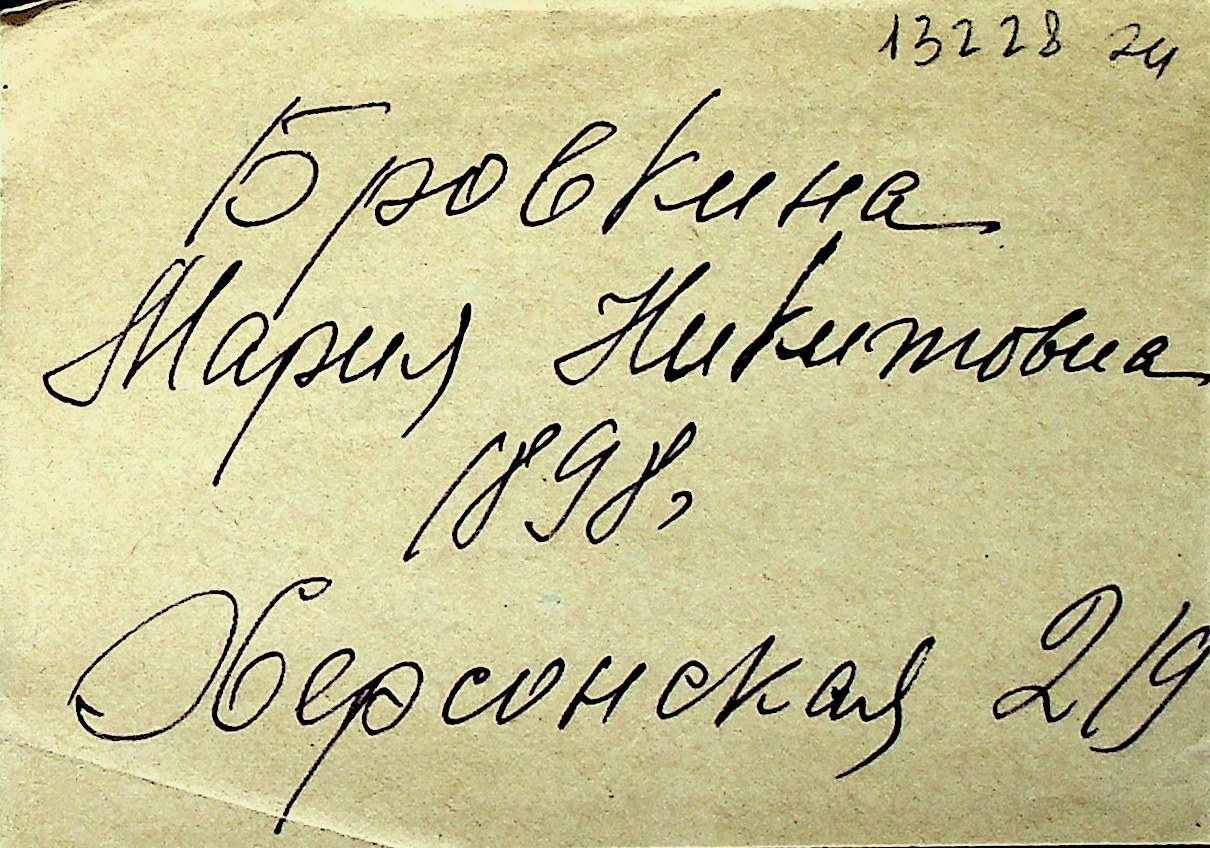 13228 гч
Бровкина
Мария Никитовна
1898,
Херсонская 2/9